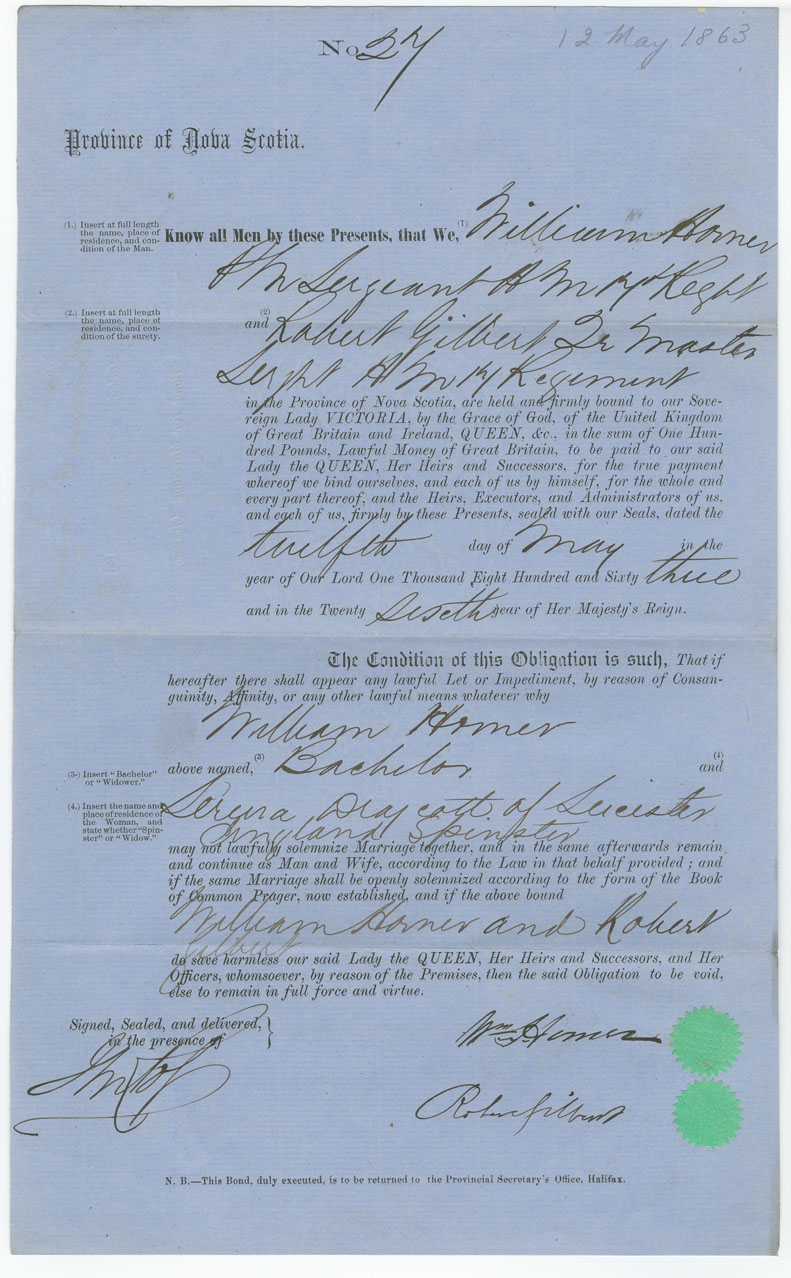 No 27
12 May 1863
Province of Nova Scotia.
(1.) Insert at full length
the name, place of
residence, and con-
dition of the Man.
Know all Men by these Presents, that We, (1) William Horner
Sergeant H M 17th Regt
(2.) Insert at full length
the name, place of
residence, and con-
dition of the surety.
and (2) Robert Gilbert Qr Master
Sergt H M 17 Regiment
in the Province of Nova Scotia, are held and firmly bound to our Sove-
reign Lady VICTORIA, by the Grace of God, of the United Kingdom
of Great Britain and Ireland, QUEEN, &c., in the sum of One Hun-
dred Pounds, Lawful Money of Great Britain, to be paid to our said
Lady the QUEEN, Her Heirs and Successors, for the true payment
whereof we bind ourselves, and each of us by himself, for the whole and
every part thereof, and the Heirs, Executors, and Administrators of us,
and each of us, firmly by these Presents, sealed with our Seals, dated the
twelfth day of May in the
year of Our Lord One Thousand Eight Hundred and Sixty three
and in the Twenty Sixth year of Her Majesty's Reign.
The Condition of this Obligation is such, That if
hereafter there shall appear any lawful Let or Impediment, by reason of Consan-
guinity, Affinity, or any other lawful means whatever why
William Horner
(3.) Insert "Bachelor"
or "Widower."
above named, (3) Bachelor and (4)
(4.) Insert the name and
place of residence of
the Woman, and
state whether "Spin-
ster" or "Widow."
Draycott. of Leicester
England Spinster
may not lawfully solemnize Marriage together, and in the same afterwards remain
and continue as Man and Wife, according to the Law in that behalf provided; and
if the same Marriage shall be openly solemnized according to the form of the Book
of Common Prager, now established, and if the above bound
William Horner and Robert
Gilbert
do save harmless our said Lady the QUEEN, Her Heirs and Successors, and Her
Officers, whomsoever, by reason of the Premises, then the said Obligation to be void,
else to remain in full force and virtue.
Signed, Sealed, and delivered,
in the presence of
Wm Horner
Robert Gilbert
N. B.—This Bond, duly executed, is to be returned to the Provincial Secretary's Office, Halifax.